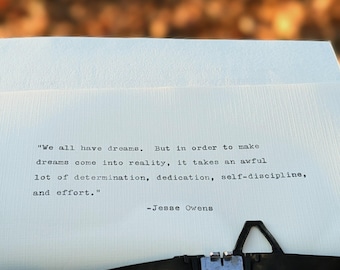 "We all have dreams. But in order to make
dreams come into reality, it takes an awful
lot of determination, dedication, self-discipline,
and effort."
-Jesse Owens